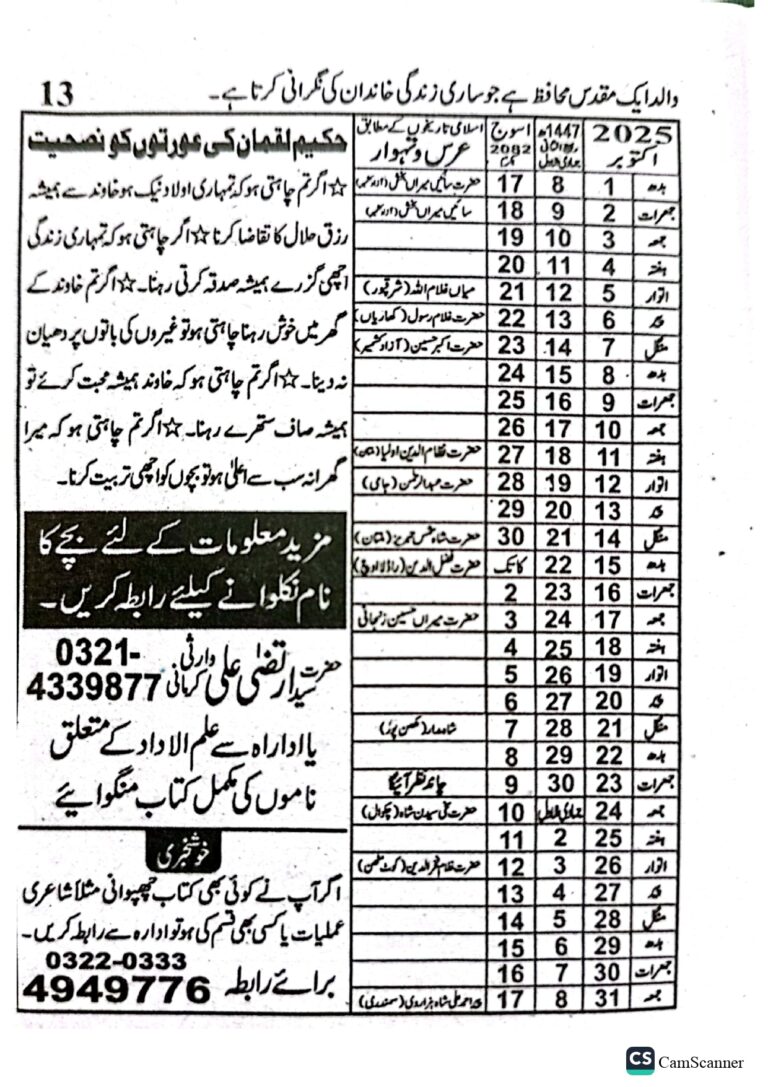 والد ایک مقدس محافظ ہے جو ساری زندگی خاندان کی نگرانی کرتا ہے۔ 13
2025 اکتوبر 1447ھ اسوج 2082 اسلامی تاریخوں کے مطابق عرس و تہوار
بدھ 1 8 17 حضرت سائیں میراں بخش
جمعرات 2 9 18 سائیں میراں بخش
جمعہ 3 10 19
ہفتہ 4 11 20
اتوار 5 12 21 میاں غلام اللہ (شرقپور)
پیر 6 13 22 حضرت غلام رسول (کھاریاں)
منگل 7 14 23 حضرت اکبر حسین (آزاد کشمیر)
بدھ 8 15 24
جمعرات 9 16 25
جمعہ 10 17 26
ہفتہ 11 18 27 حضرت نظام الدین اولیا
اتوار 12 19 28 حضرت عبدالرحمن (جامی)
پیر 13 20 29
منگل 14 21 30 حضرت شاہ شمس تبریز (ملتان)
بدھ 15 22 کاتک حضرت فضل الدین
جمعرات 16 23 2
جمعہ 17 24 3 حضرت میراں حسین زنجانی
ہفتہ 18 25 4
اتوار 19 26 5
پیر 20 27 6
منگل 21 28 7 شاہ مدار (مکھن پور)
بدھ 22 29 8
جمعرات 23 30 9 چاند نظر آئیگا
جمعہ 24 جمادی الاول 10 حضرت سخی سیدن شاہ (چکوال)
ہفتہ 25 2 11
اتوار 26 3 12 حضرت غلام فخرالدین (کوٹ مٹھن)
پیر 27 4 13
منگل 28 5 14
بدھ 29 6 15
جمعرات 30 7 16
جمعہ 31 8 17 پیر احمد علی شاہ ہزاروی (سمندری)
حکیم لقمان کی عورتوں کو نصحیت
☆ اگر تم چاہتی ہو کہ تمہاری اولاد نیک ہو خاوند سے ہمیشہ
رزق حلال کا تقاضا کرنا ☆ اگر چاہتی ہو کہ تمہاری زندگی
اچھی گزرے ہمیشہ صدقہ کرتی رہنا۔ ☆ اگر تم خاوند کے
گھر میں خوش رہنا چاہتی ہو تو غیروں کی باتوں پر دھیان
نہ دینا۔ ☆ اگر تم چاہتی ہو کہ خاوند ہمیشہ محبت کرے تو
ہمیشہ صاف ستھرے رہنا۔ ☆ اگر تم چاہتی ہو کہ میرا
گھرانہ سب سے اعلیٰ ہو تو بچوں کو اچھی تربیت کرنا۔
مزید معلومات کے لئے بچے کا
نام نکلوانے کیلئے رابطہ کریں۔
حضرت سید ارتضیٰ علی وارثی کرمانی 0321-4339877
یا ادارہ سے علم الاداد کے متعلق
ناموں کی مکمل کتاب منگوائیے
خوشخبری
اگر آپ نے کوئی بھی کتاب چھپوانی مثلاً شاعری
عملیات یا کسی بھی قسم کی ہو تو ادارہ سے رابطہ کریں۔
0322-0333
برائے رابطہ 4949776
CS CamScanner